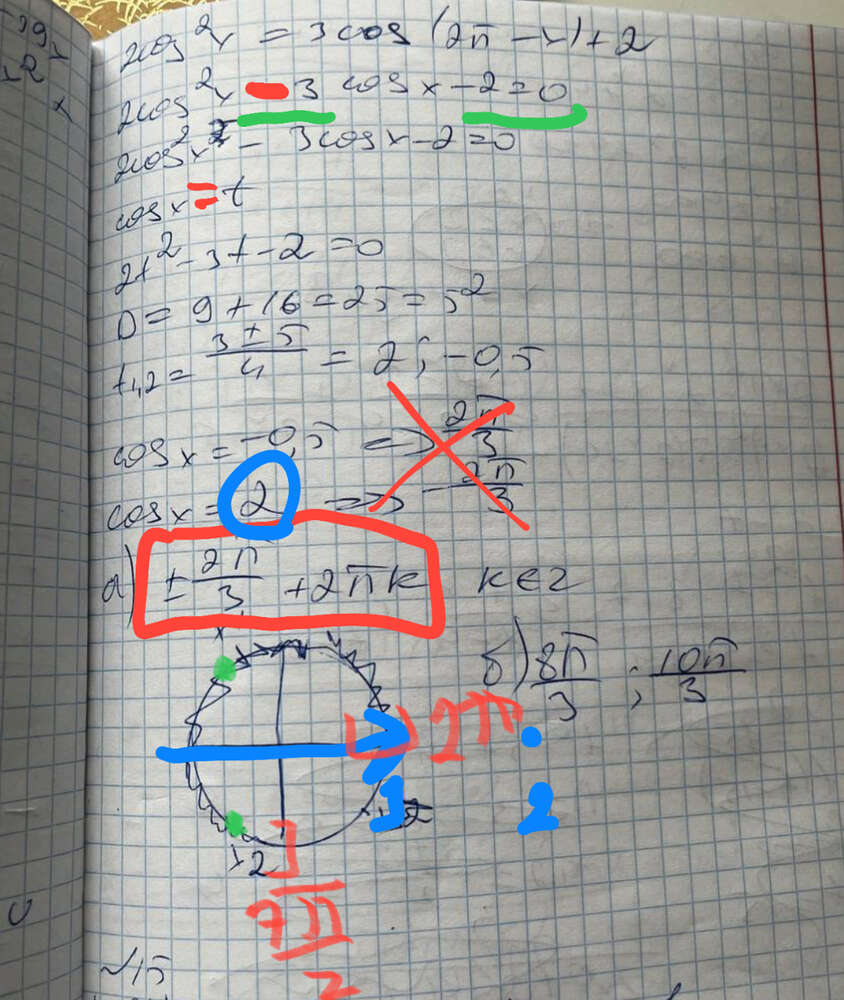 2cos²x = 3cos(2π - x) + 2
2cos²x - 3 cosx - 2 = 0
2cos²x - 3cosx - 2 = 0
cosx = t
2t² - 3t - 2 = 0
D = 9 + 16 = 25 = 5²
t1,2 = (3 ± 5)/4 = 2; -0,5
cosx = -0,5 => 2π/3
cosx = 2 => -2π/3
а) ± 2π/3 + 2πk k∈z
б) 8π/3 ; 10π/3
2π
1 2
x2
7π/2
~15